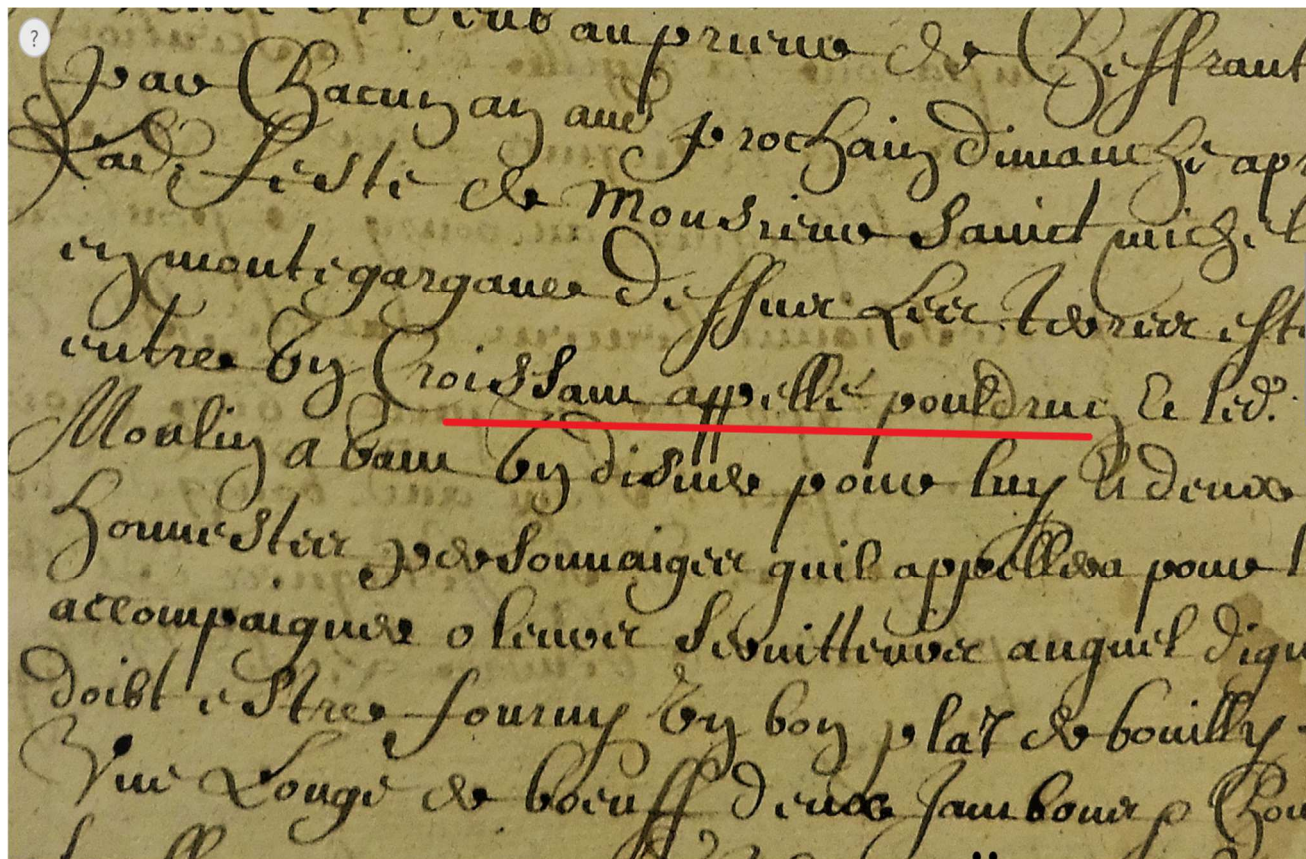 deub au prieur de Geffrant
par Chacun an au prochain dimanche apr
lad. feste de Monsieur Sainct michel
en monte gargane dessur Les terres est
entre Un Croissam appellé pouldruc et led.
Moulin a bam Un disner pour luy et deux
honnestes personnaiges quil appellera pour l
accompaigner o leurs serviteurs auquel disn
doibt estre fourny Un bon plat de bouilly
Une Longe de boeuff deux Jambons